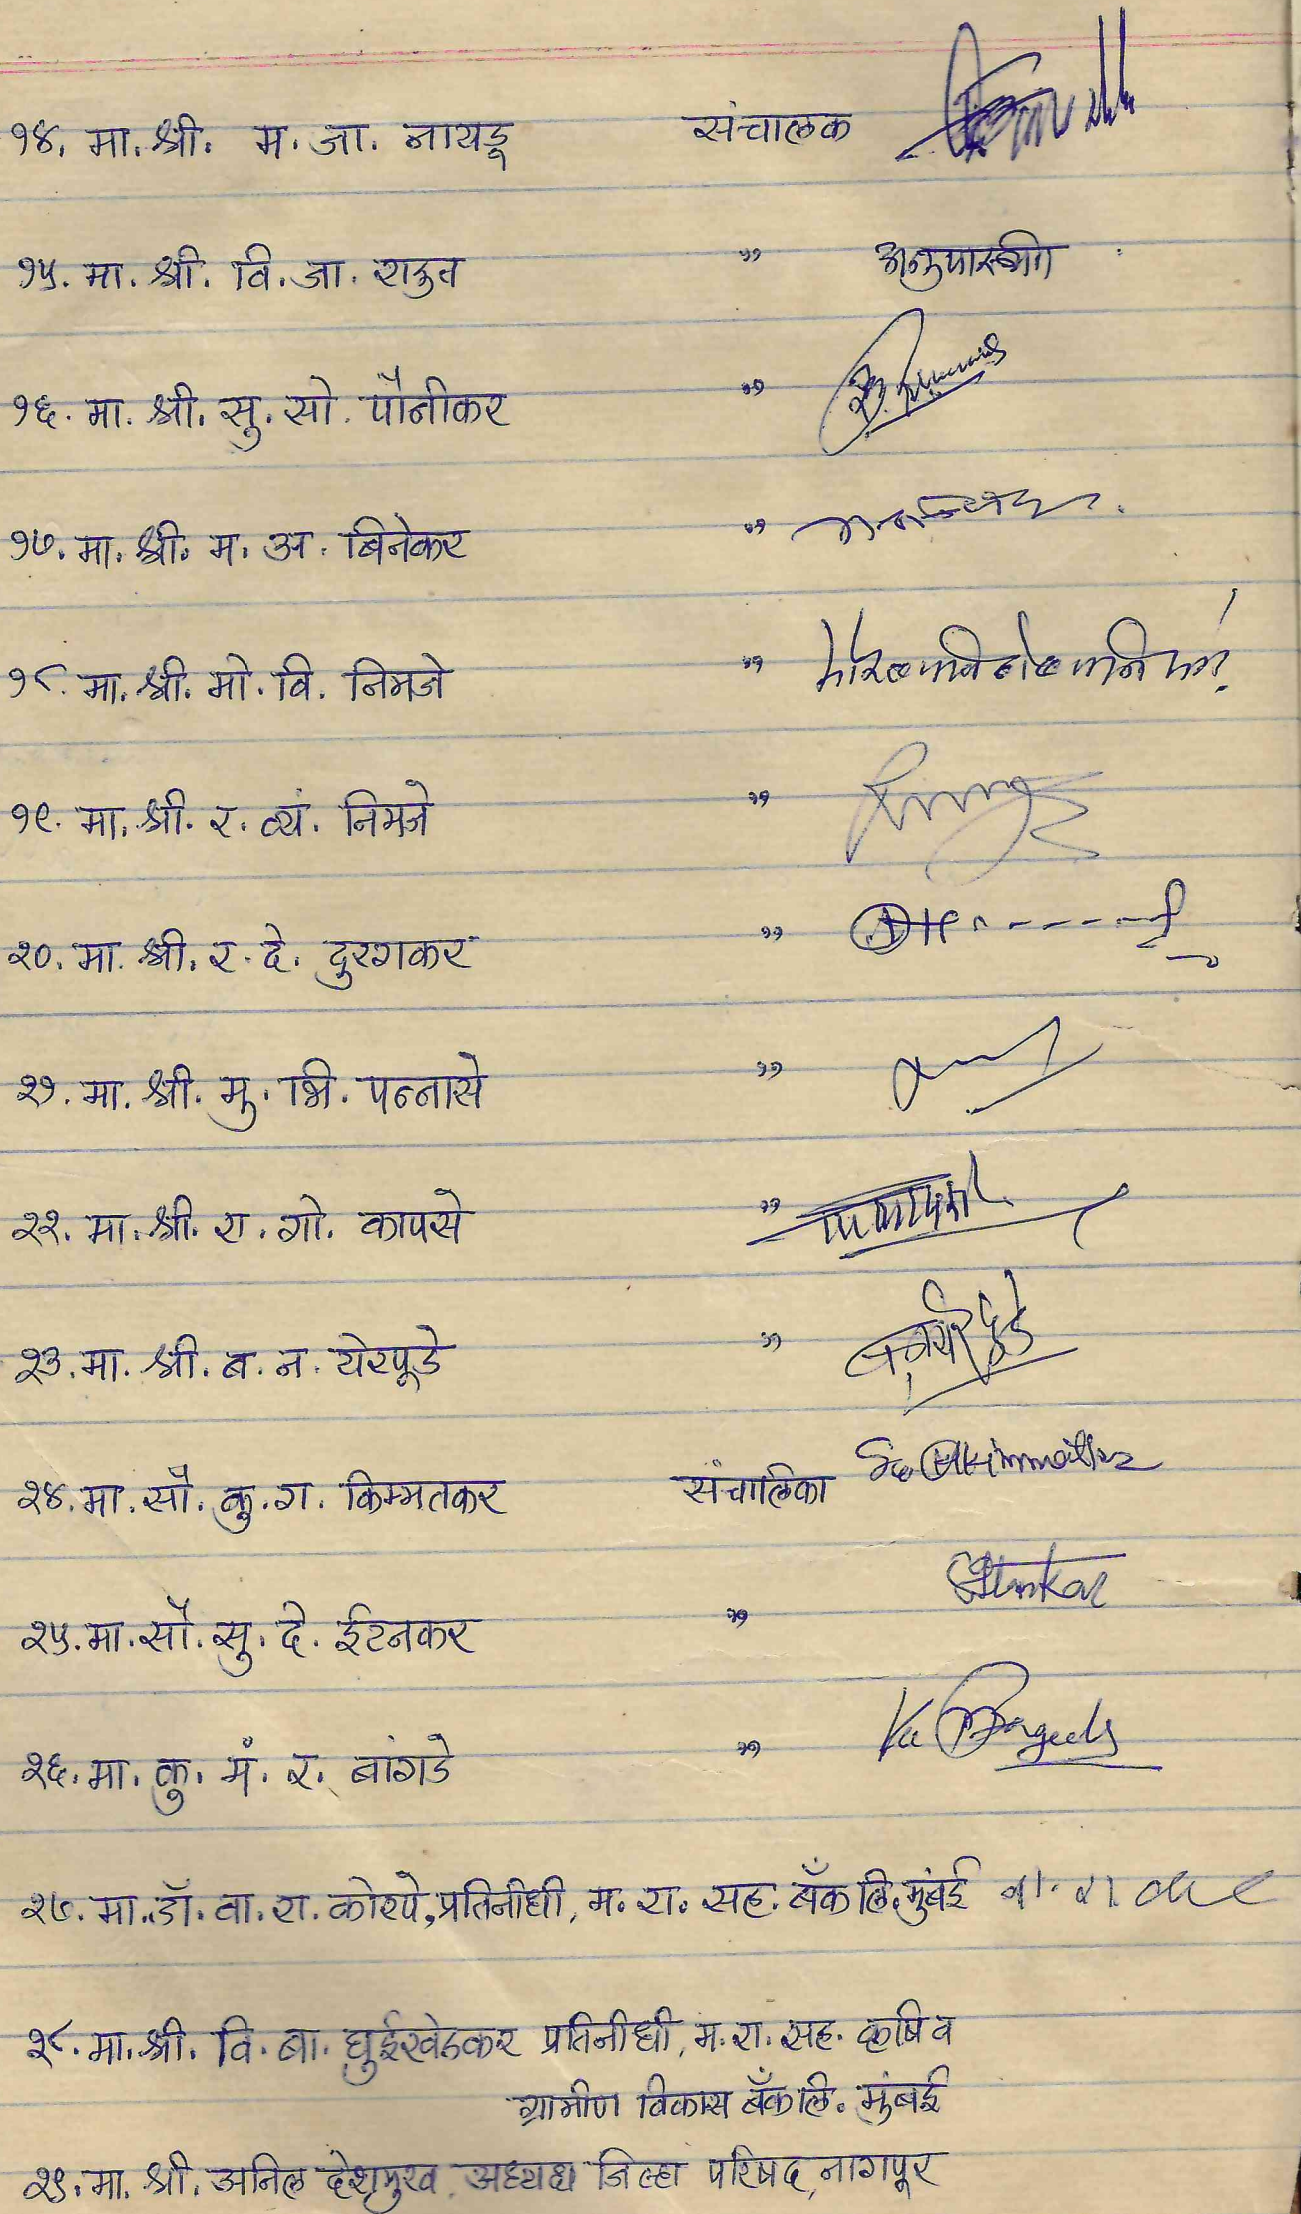 १४. मा. श्री. म. जा. नायडू संचालक
१५. मा. श्री. वि. जा. राऊत " अनुपस्थित
१६. मा. श्री. सु. सो. पौनीकर "
१७. मा. श्री. म. अ. बिनेकर "
१८. मा. श्री. मो. वि. निमजे "
१९. मा. श्री. र. व्यं. निमजे "
२०. मा. श्री. र. दे. दुरगकर "
२१. मा. श्री. मु. भि. पन्नासे "
२२. मा. श्री. रा. गो. कापसे "
२३. मा. श्री. ब. न. येरपूडे " ब. न. येरपुडे
२४. मा. सौ. कु. ग. किम्मतकर संचालिका
२५. मा. सौ. सु. दे. ईटनकर " Itankar
२६. मा. कु. मं. र. बांगडे "
२७. मा. डॉ. वा. रा. कोरपे, प्रतिनीधी, म. रा. सह. बँक लि. मुंबई
२८. मा. श्री. वि. बा. घुईखेडकर प्रतिनीधी, म. रा. सह. कृषि व
ग्रामीण विकास बँक लि. मुंबई
२९. मा. श्री. अनिल देशमुख, अध्यक्ष जिल्हा परिषद, नागपूर